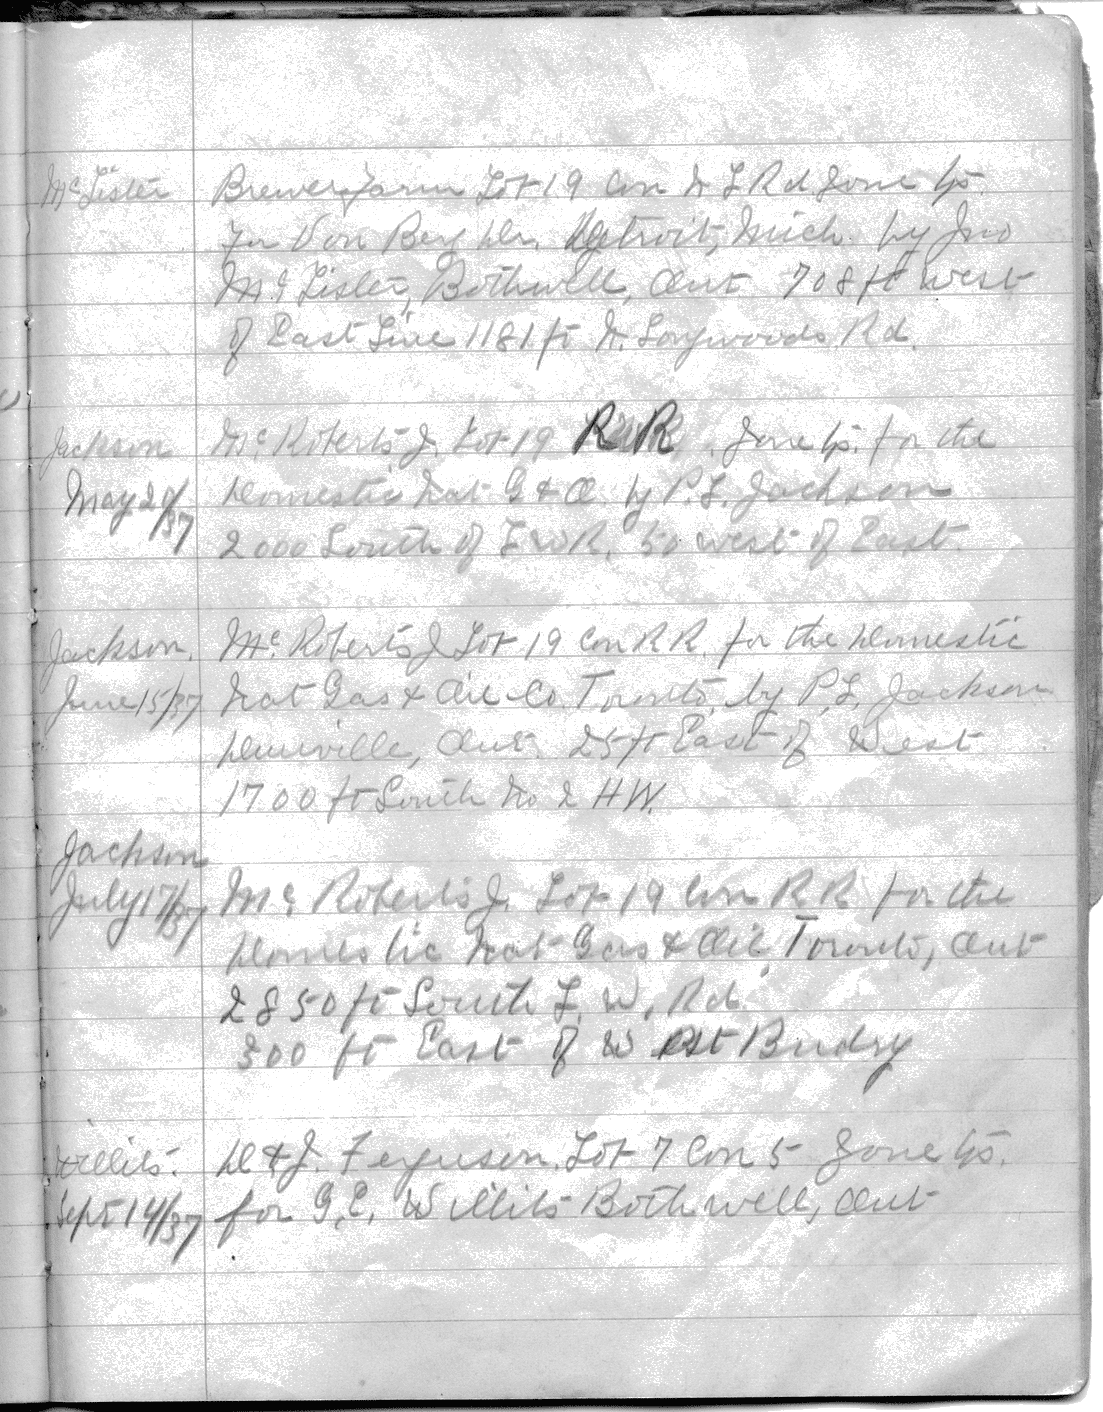 McLister Brewer Farm Lot 19 Con N L Rd Zone tp.
for Von Berg Dr. Detroit, Mich. by Jno
McLister, Bothwell, Ont 708 ft west
of East Line 1181 ft N. Longwoods Rd.
Jackson McRoberts J. Lot 19 R R. Zone tp. for the
May 29/37 Domestic Nat G & O by P. L. Jackson
2000 South of L W R. 50 west of East.
Jackson. McRoberts J Lot 19 Con R R. for the Domestic
June 15/37 Nat Gas & Oil Co. Toronto, by P. L. Jackson
Dunnville, Ont. 25 ft East of West
1700 ft South No 2 H W.
Jackson
July 17/37 McRoberts J. Lot 19 Con R R for the
Domestic Nat Gas & Oil, Toronto, Ont
2850 ft South L. W. Rd.
300 ft East of West Bndry
Willits. D & J. Ferguson. Lot 7 Con 5 Zone tp.
Sept 14/37 for G. E. Willits Bothwell, Ont